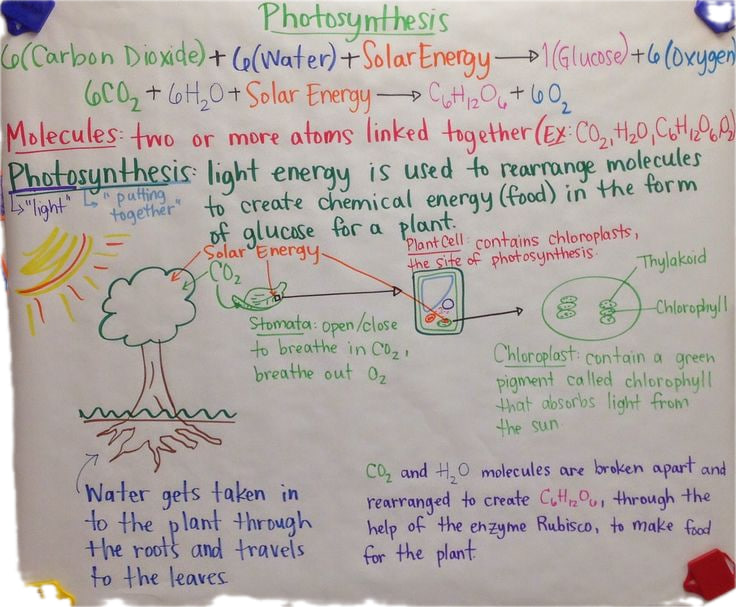 Photosynthesis
6(Carbon Dioxide) + 6(Water) + Solar Energy → 1(Glucose) + 6(Oxygen)
6CO₂ + 6H₂O + Solar Energy → C₆H₁₂O₆ + 6O₂
Molecules: two or more atoms linked together (EX: CO₂, H₂O, C₆H₁₂O₆, O₂)
Photosynthesis: light energy is used to rearrange molecules
to create chemical energy (food) in the form
of glucose for a plant.
"light"
"putting
together"
Solar Energy
CO₂
Stomata: open/close
to breathe in CO₂,
breathe out O₂
Plant Cell: contains chloroplasts,
the site of photosynthesis.
Thylakoid
Chlorophyll
Chloroplast: contain a green
pigment called chlorophyll
that absorbs light from
the sun.
Water gets taken in
to the plant through
the roots and travels
to the leaves.
CO₂ and H₂O molecules are broken apart and
rearranged to create C₆H₁₂O₆, through the
help of the enzyme Rubisco, to make food
for the plant.